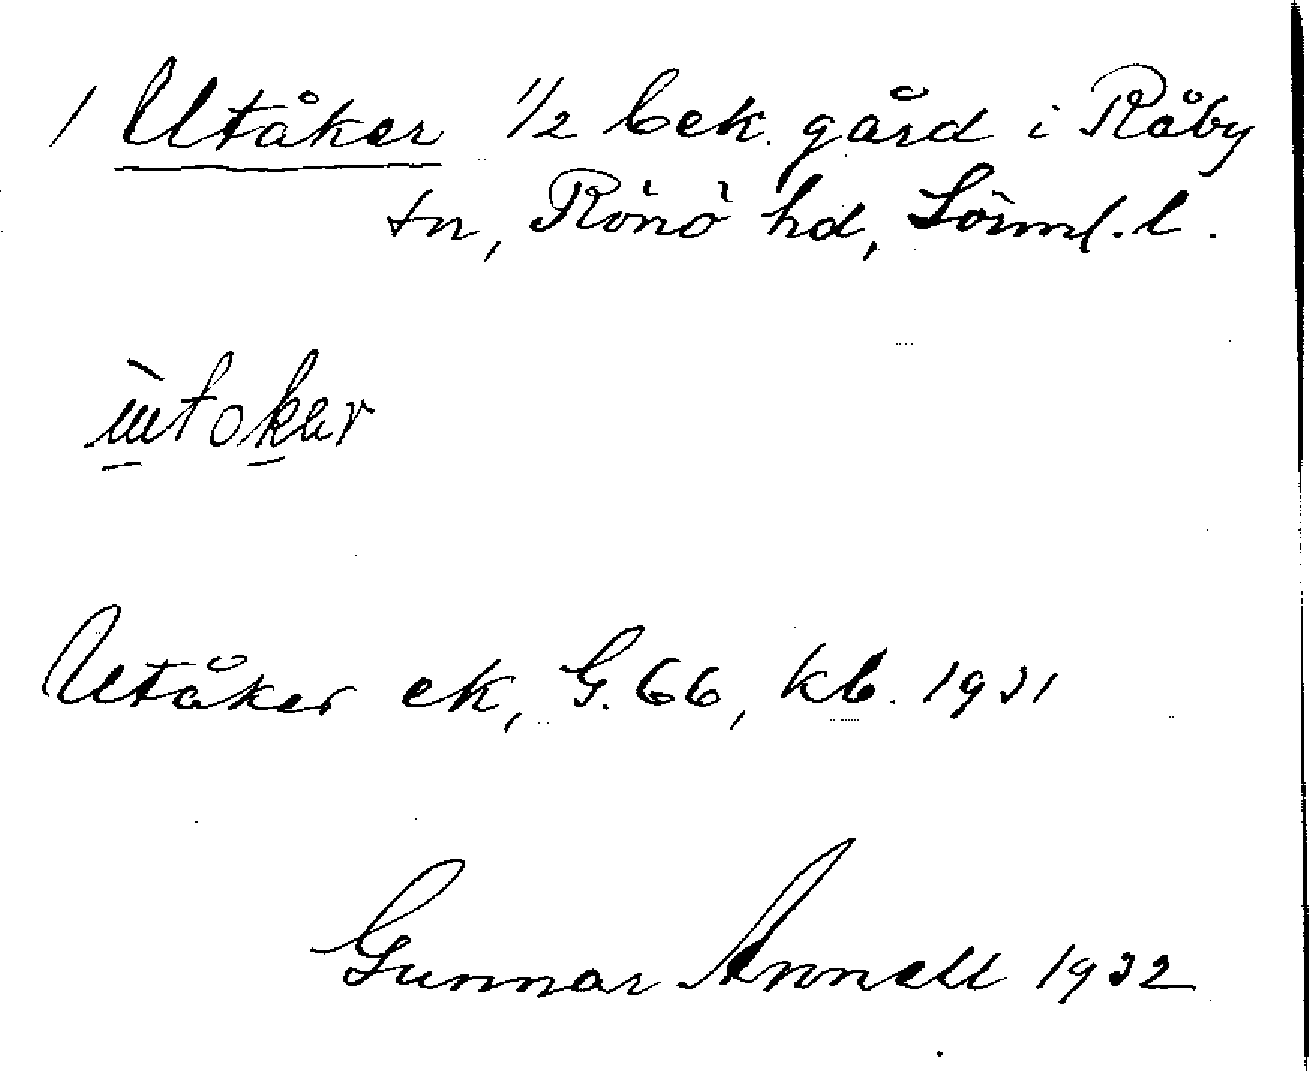 1 Utåker 1/2 bek. gård i Råby
sn, Rönö hd, Sörml. l.
Utåker ek, G. 66, kb. 1931
Gunnar Annell 1932